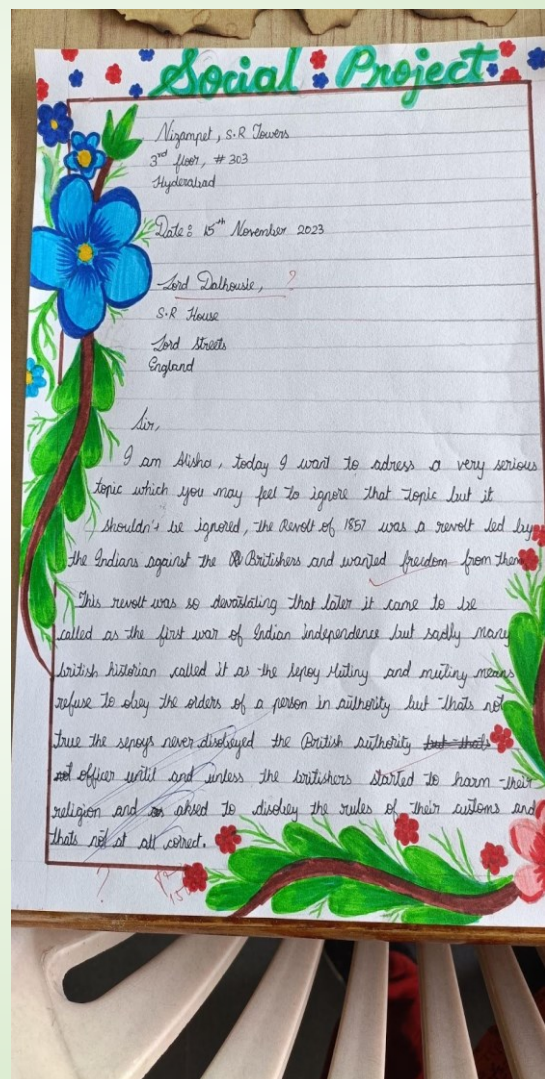 Social Project
Nizampet, S.R Towers
3rd floor, # 303
Hyderabad
Date: 15th November 2023
Lord Dalhousie, ?
S.R House
Lord Streets
England
Sir,
I am Alisha, today I want to adress a very serious
topic which you may feel to ignore that topic but it
shouldn't be ignored, the Revolt of 1857 was a revolt led by
the Indians against the Britishers and wanted freedom from them
This revolt was so devastating that later it came to be
called as the first war of Indian independence but sadly many
british historian called it as the sepoy Mutiny and mutiny means
refuse to obey the orders of a person in authority but thats not
true the sepoys never disobeyed the British authority but thats
not officer until and unless the britishers started to harm their
religion and aksed to disobey the rules of their customs and
thats not at all correct.
?